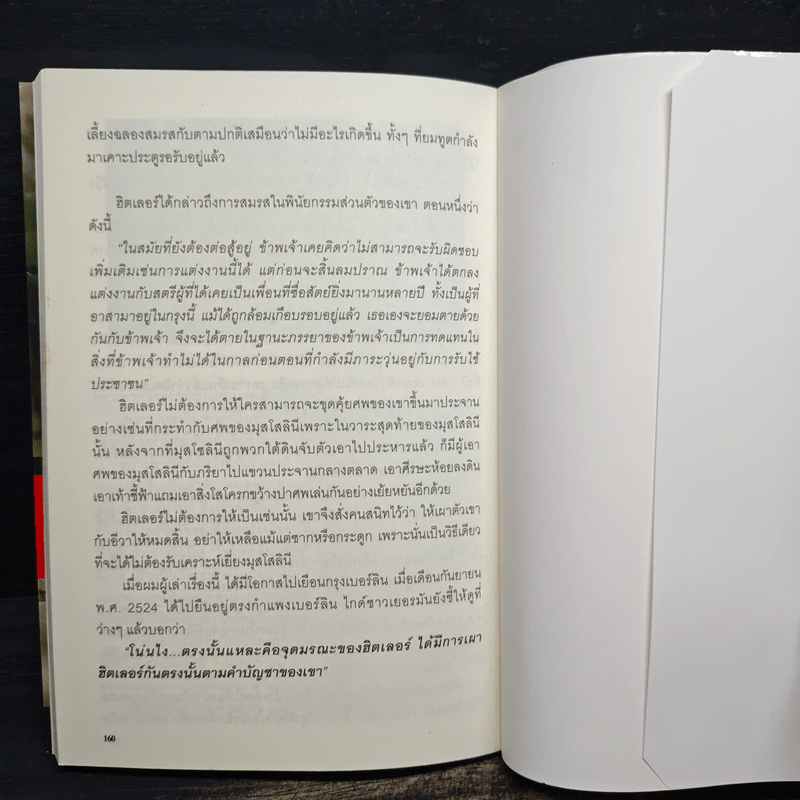 เลี้ยงฉลองสมรสกับตามปกติเสมือนว่าไม่มีอะไรเกิดขึ้น ทั้งๆ ที่ยมทูตกำลัง
มาเคาะประตูรอรับอยู่แล้ว
ฮิตเลอร์ได้กล่าวถึงการสมรสในพินัยกรรมส่วนตัวของเขา ตอนหนึ่งว่า
ดังนี้
"ในสมัยที่ยังต้องต่อสู้อยู่ ข้าพเจ้าเคยคิดว่าไม่สามารถจะรับผิดชอบ
เพิ่มเติมเช่นการแต่งงานนี้ได้ แต่ก่อนจะสิ้นลมปราณ ข้าพเจ้าได้ตกลง
แต่งงานกับสตรีผู้ที่ได้เคยเป็นเพื่อนที่ซื่อสัตย์ยิ่งมานานหลายปี ทั้งเป็นผู้ที่
อาสามาอยู่ในกรุงนี้ แม้ได้ถูกล้อมเกือบรอบอยู่แล้ว เธอเองจะยอมตายด้วย
กันกับข้าพเจ้า จึงจะได้ตายในฐานะภรรยาของข้าพเจ้าเป็นการทดแทนใน
สิ่งที่ข้าพเจ้าทำไม่ได้ในกาลก่อนตอนที่กำลังมีภาระวุ่นอยู่กับการรับใช้
ประชาชน"
ฮิตเลอร์ไม่ต้องการให้ใครสามารถจะขุดคุ้ยศพของเขาขึ้นมาประจาน
อย่างเช่นที่กระทำกับศพของมุสโสลินีเพราะในวาระสุดท้ายของมุสโสลินี
นั้น หลังจากที่มุสโซลินีถูกพวกใต้ดินจับตัวเอาไปประหารแล้ว ก็มีผู้เอา
ศพของมุสโสลินีกับภริยาไปแขวนประจานกลางตลาด เอาศีรษะห้อยลงดิน
เอาเท้าชี้ฟ้าแถมเอาสิ่งโสโครกขว้างปาศพเล่นกันอย่างเย้ยหยันอีกด้วย
ฮิตเลอร์ไม่ต้องการให้เป็นเช่นนั้น เขาจึงสั่งคนสนิทไว้ว่า ให้เผาตัวเขา
กับอีวาให้หมดสิ้น อย่าให้เหลือแม้แต่ซากหรือกระดูก เพราะนั่นเป็นวิธีเดียว
ที่จะได้ไม่ต้องรับเคราะห์เยี่ยงมุสโสลินี
เมื่อผมผู้เล่าเรื่องนี้ ได้มีโอกาสไปเยือนกรุงเบอร์ลิน เมื่อเดือนกันยายน
พ.ศ. 2524 ได้ไปยืนอยู่ตรงกำแพงเบอร์ลิน ไกด์ชาวเยอรมันยังชี้ให้ดูที่
ว่างๆ แล้วบอกว่า
"โน่นไง...ตรงนั้นแหละคือจุดมรณะของฮิตเลอร์ ได้มีการเผา
ฮิตเลอร์กันตรงนั้นตามคำบัญชาของเขา"
160